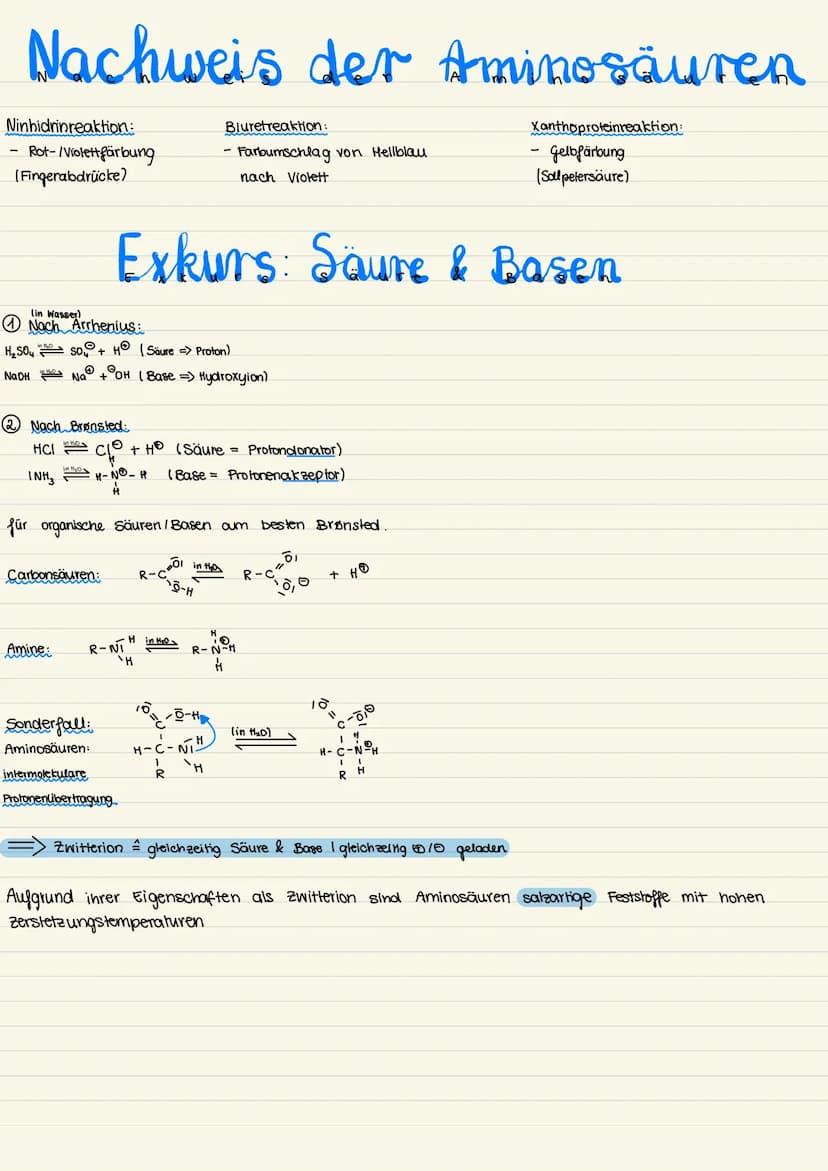 Nachweis der Aminosäuren
Ninhidrinreaktion:
- Rot-/Violettfärbung
(Fingerabdrücke)
Biuretreaktion:
- Farbumschlag von Hellblau
nach Violett
Xanthoproteinreaktion:
- Gelbfärbung
(Sallpetersäure)
Exkurs: Säure & Basen
(in Wasser)
① Nach Arrhenius:
H₂SO₄ ⇌ (in H₂O) SO₄⊖ + H⊕ (Säure => Proton)
NaOH ⇌ (in H₂O) Na⊕ + ⊖OH (Base => Hydroxyion)
② Nach Brønsted:
HCl ⇌ (in H₂O) Cl⊖ + H⊕ (Säure = Protondonator)
|NH₃ ⇌ (in H₂O) H-N⊕-H (Base = Protonenakzeptor)
H
H
für organische Säuren/Basen am besten Brønsted.
Carbonsäuren: R-C O O-H ⇌ in H₂O R-C O O⊖ + H⊕
Amine: R-N H H ⇌ in H₂O R-N⊕-H H H
Sonderfall:
Aminosäuren:
intermolekulare
Protonenübertragung
O C-O-H
H-C-N H H
R
(in H₂O) ⇌
O C-O⊖
H-C-N⊕H H H
R
=> Zwitterion ≙ gleichzeitig Säure & Base | gleichzeitig ⊕/⊖ geladen
Aufgrund ihrer Eigenschaften als Zwitterion sind Aminosäuren salzartige Feststoffe mit hohen
Zerstetzungstemperaturen